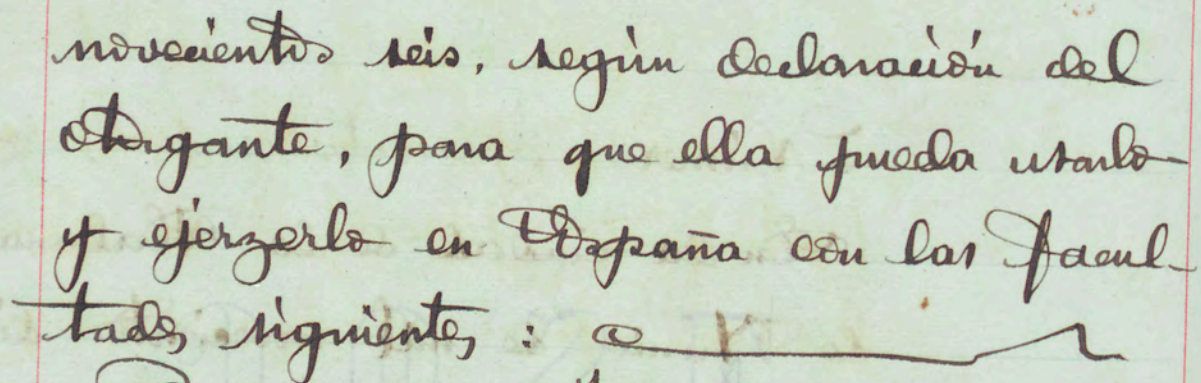 novecientos seis, según declaración del
otorgante, para que ella pueda usarlo
y ejerzerlo en España con las facul-
tades siguientes :